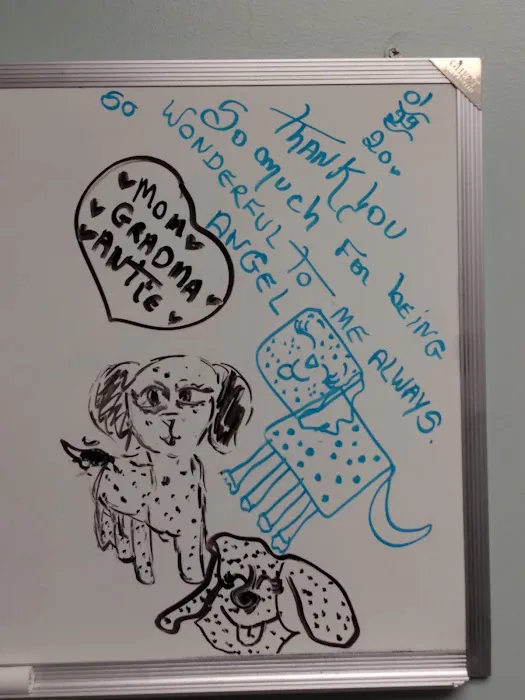 THANK YOU
SO MUCH FOR BEING
SO WONDERFUL TO ME ALWAYS.
ANGEL
MOM
GRADMA
ANTIE